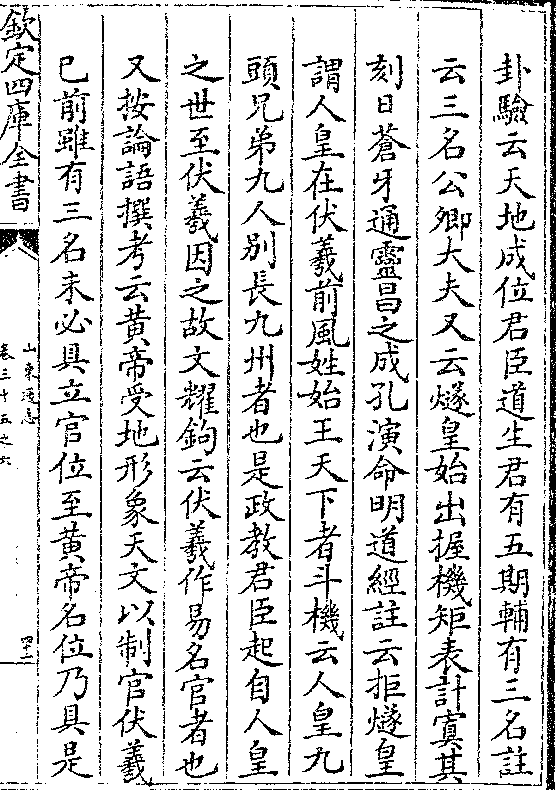 卦驗云天地成位君臣道生君有五期輔有三名註
云三名公卿大夫又云燧皇始出握機矩表計寘其
刻日蒼牙通靈昌之成孔演命明道經註云拒燧皇
謂人皇在伏羲前風姓始王天下者斗機云人皇九
頭兄弟九人别長九州者也是政教君臣起自人皇
之世至伏羲因之故文耀鉤云伏羲作易名官者也
又按論語撰考云黄帝受地形象天文以制官伏羲
已前雖有三名未必具立官位至黄帝名位乃具是
欽定四庫全書
山東通志
卷三十五之六
四十二